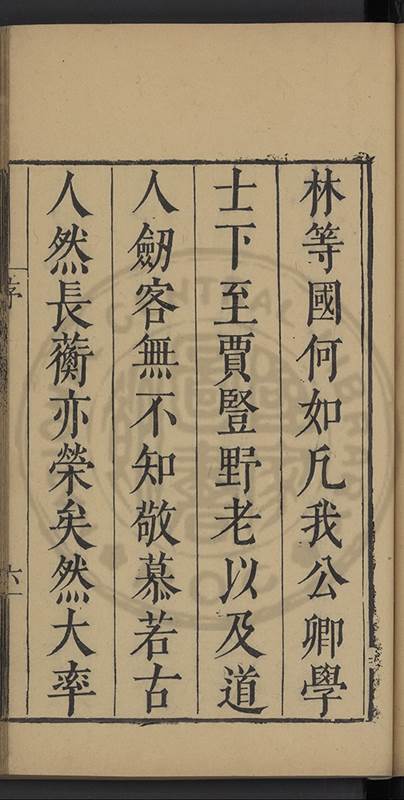 林等國何如凡我公卿學
士下至賈豎野老以及道
人劒客無不知敬慕若古
人然長蘅亦榮矣然大率
序
六